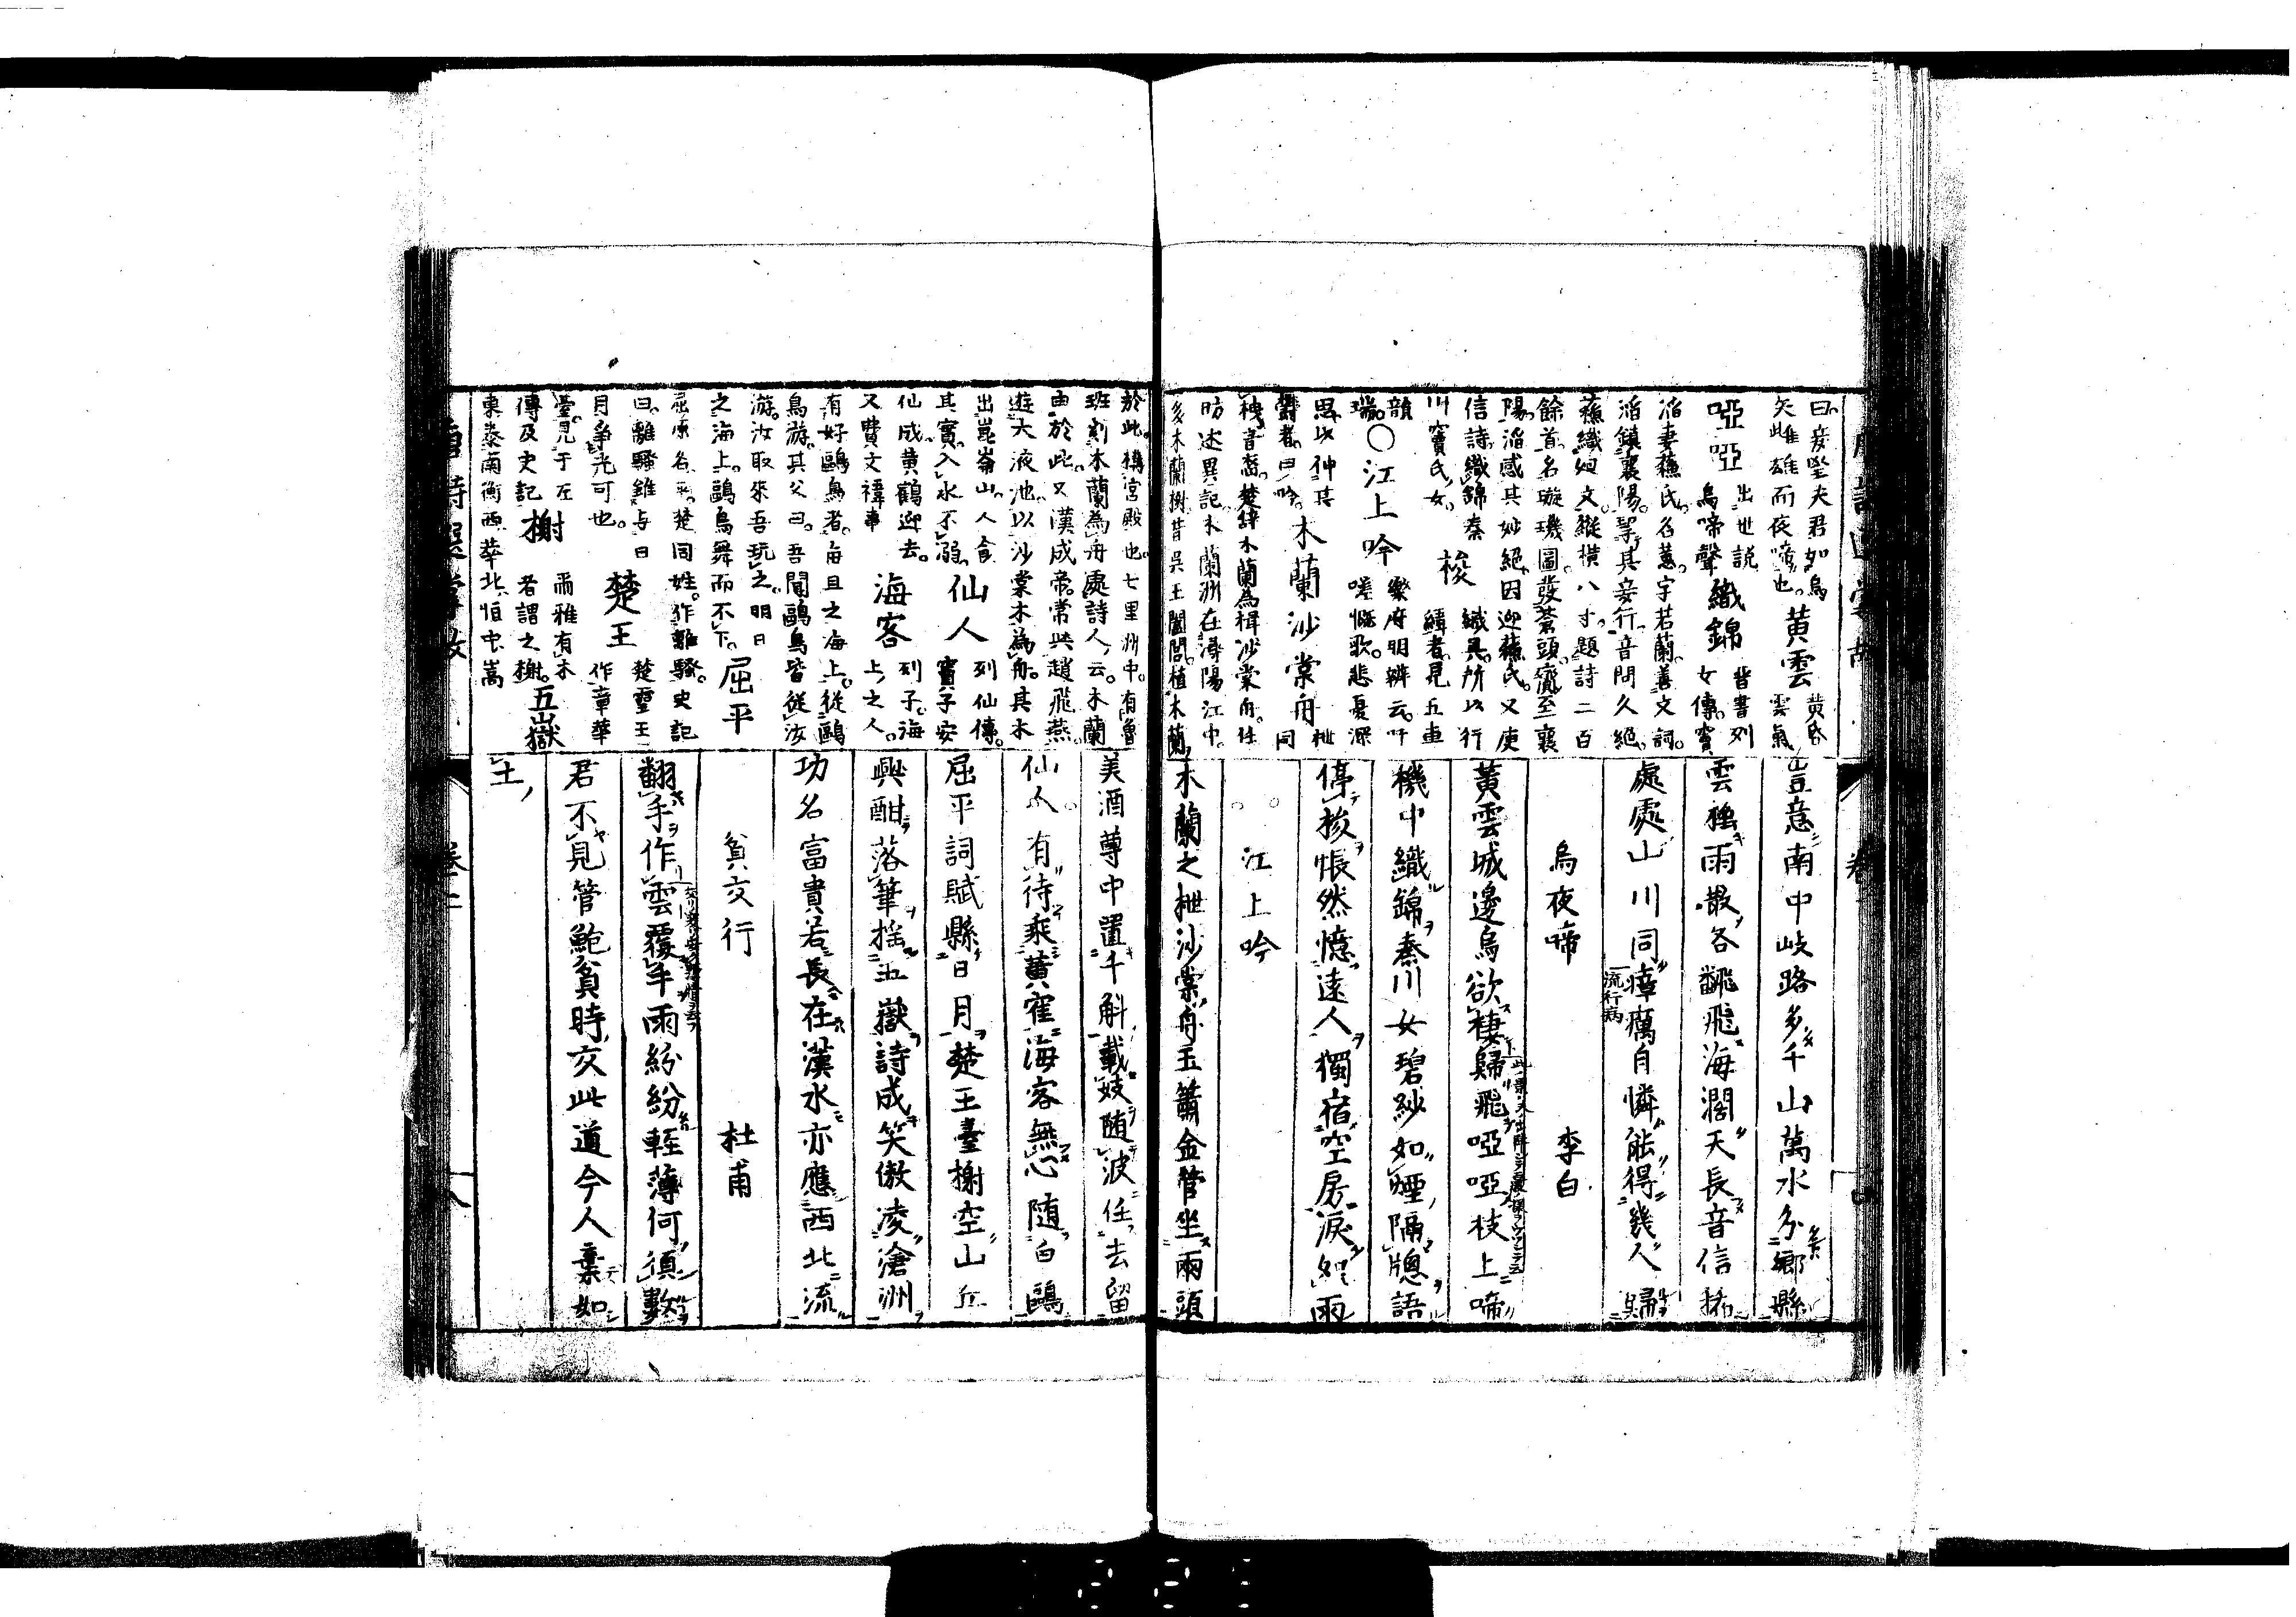 曰妾望夫君如烏
矢雌雄而夜啼也。黄雲 黄昏雲氣
啞啞 出世説烏啼聲 織錦 晋書列女傳。竇
滔妻蘓氏。名蕙。字若蘭。善文詞。
滔鎮襄陽。挈其妾行。音問久絕。
蘓織廻文。縱横八寸。題詩二百
餘首。名璇璣圖。發蒼頭。齎至襄
陽。滔感其妙絕。因迎蘓氏。又庾
信詩。織錦秦川竇氏女。梭 織具。所以行緯者。見五車
韻瑞。〇江上吟 樂府明辨云。吁嗟慨歌。悲憂深
思。以伸其鬱者。曰吟。木蘭沙棠舟 枻同
栧。音裔。楚辞木蘭為楫沙棠舟。任
昉述異記。木蘭洲在潯陽江中。
多木蘭樹。昔吳王闔閭。植木蘭
豈意南中岐路多千山萬水分鄉縣
雲雨散各飜飛海濶天長音信稀
處處山川同瘴癘自憐能得幾人歸
流行病
烏夜啼 李白
黄雲城邊烏欲棲歸飛啞啞枝上啼
機中織錦秦川女碧紗如煙隔牕語
停梭悵然憶遠人獨宿空房淚如雨
江上吟
木蘭之枻沙棠舟玉簫金管坐兩頭
於此。構宮殿也。七里洲中。有魯
班刻木蘭為舟處詩人云。木蘭
由於此。又漢成帝。常與趙飛燕。
遊大液池。以沙棠木為舟。其木
出崑崙山。人食其實。入水不溺。仙人 列仙傳。竇子安
仙成。黄鶴迎去。又費文禕事 海客 列子。海上之人。
有好鷗鳥者。每旦之海上。從鷗
鳥游。其父曰。吾聞鷗鳥皆從汝
游。汝取來吾玩之。明日之海上。鷗鳥舞而不下。屈平
屈原名平。楚同姓。作離騷。史記
曰。離騷雖与日月爭光可也。楚王 楚靈王作章華
臺。見于左傳及史記 榭 爾雅有木者謂之榭。五嶽
東泰南衡西華北恒中嵩
美酒尊中置千斛載妓随波任去留
仙人有待乘黄寉海客無心随白鷗
屈平詞賦縣日月楚王臺榭空山丘
興酣落筆揺五嶽詩成笑傲凌滄洲
功名富貴若長在漢水亦應西北流
貧交行 杜甫
翻手作雲覆手雨紛紛輕薄何須數
君不見管鮑貧時交此道今人棄如
土